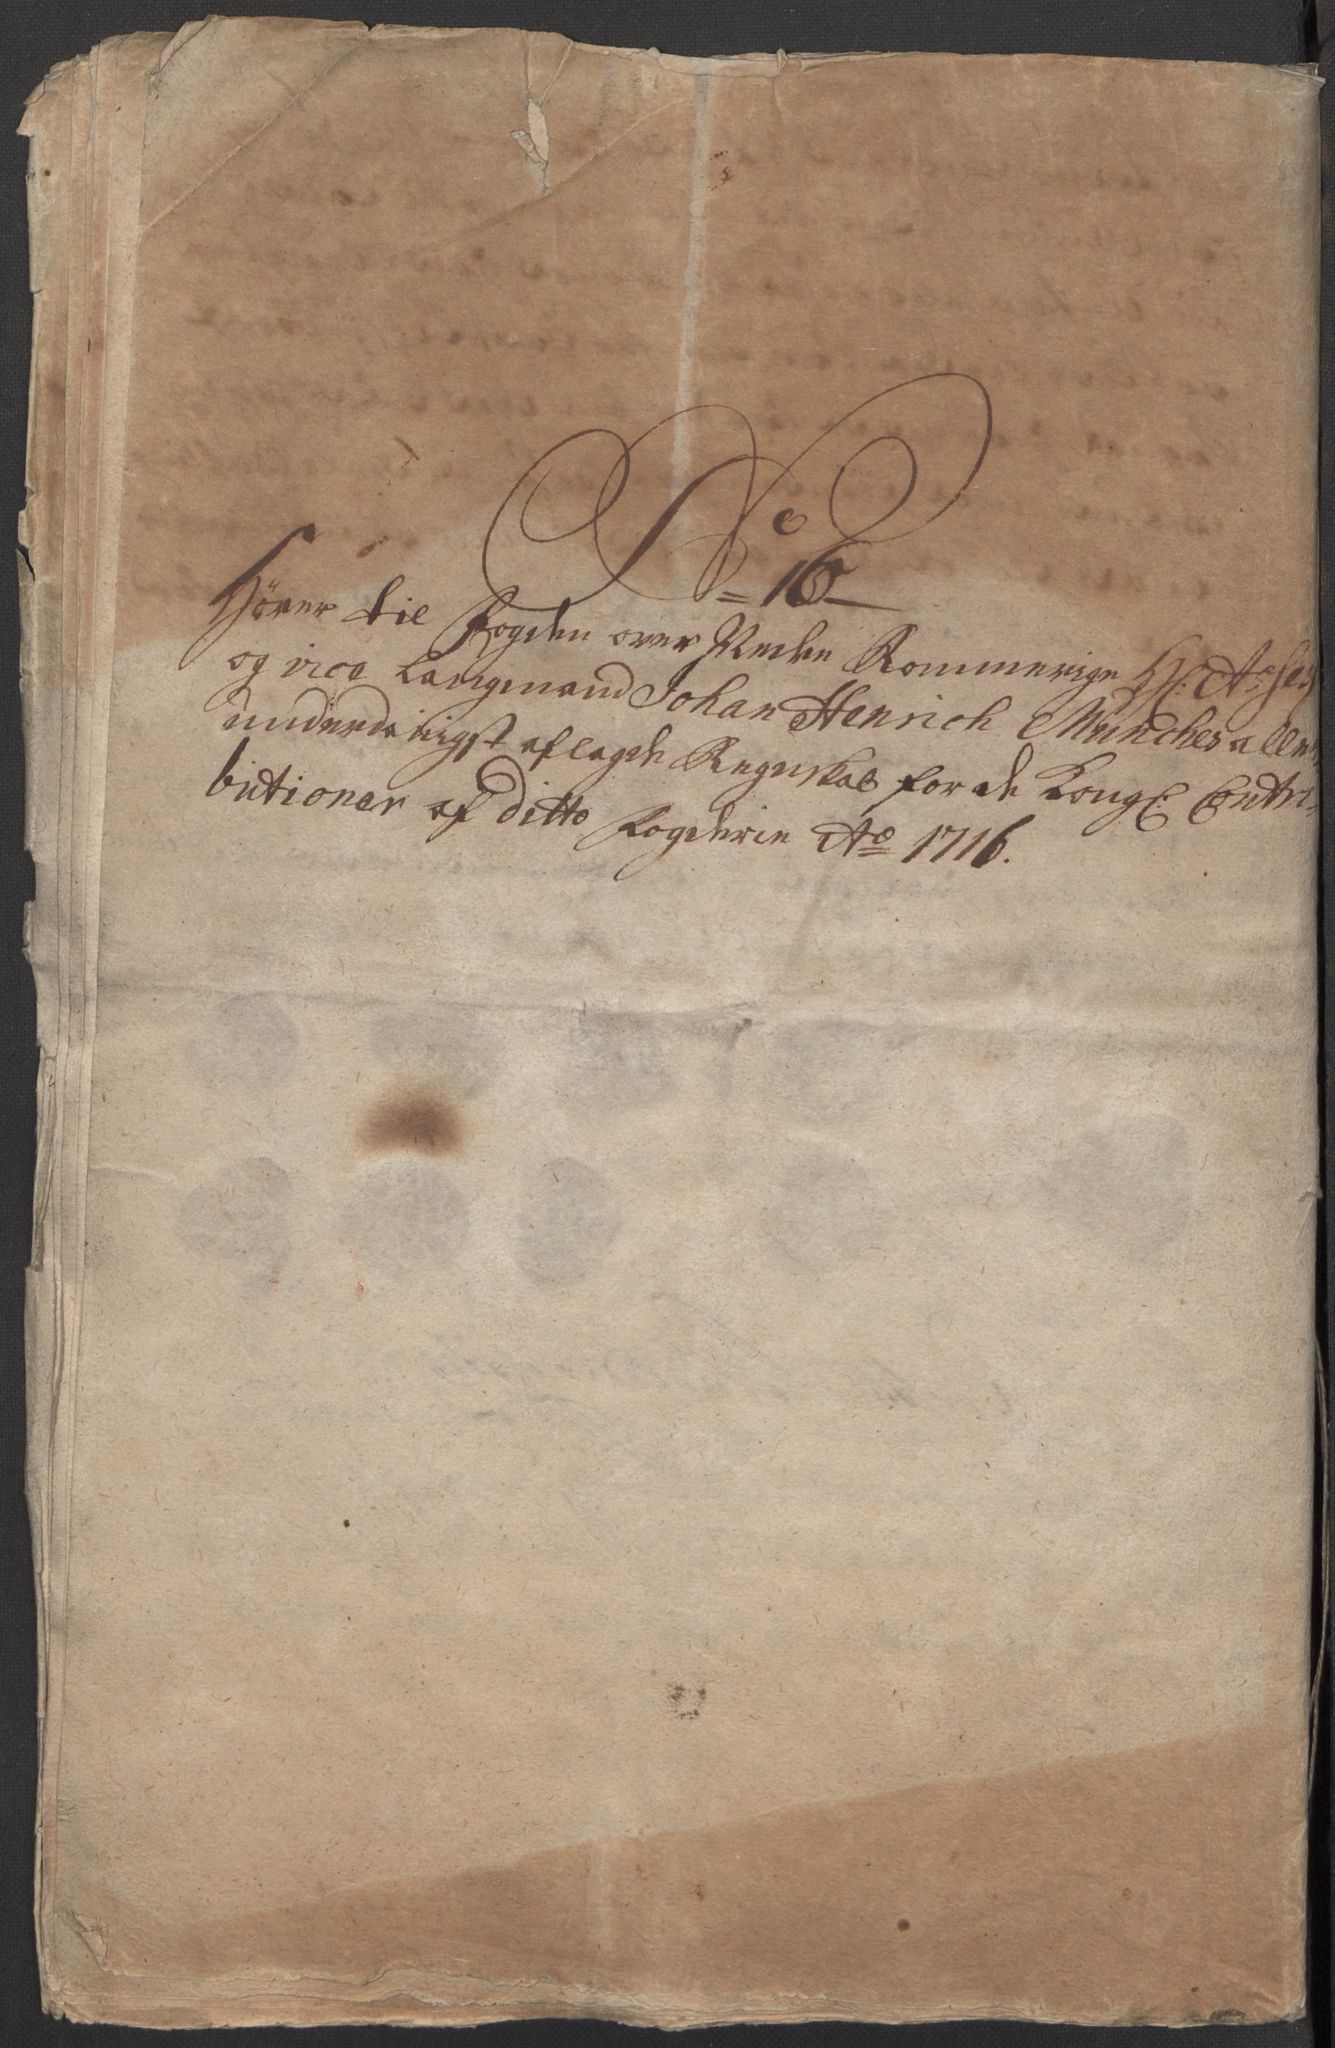 No
=16=
Hörer til Fogden over Nedre Rommerige Hr: Assess:
og vice Laugmand Johan Henrich Munches aller
underdanigst aflagde Regnskab for de Kongl: Contri-
butioner af ditto Fogderie Ao 1716.